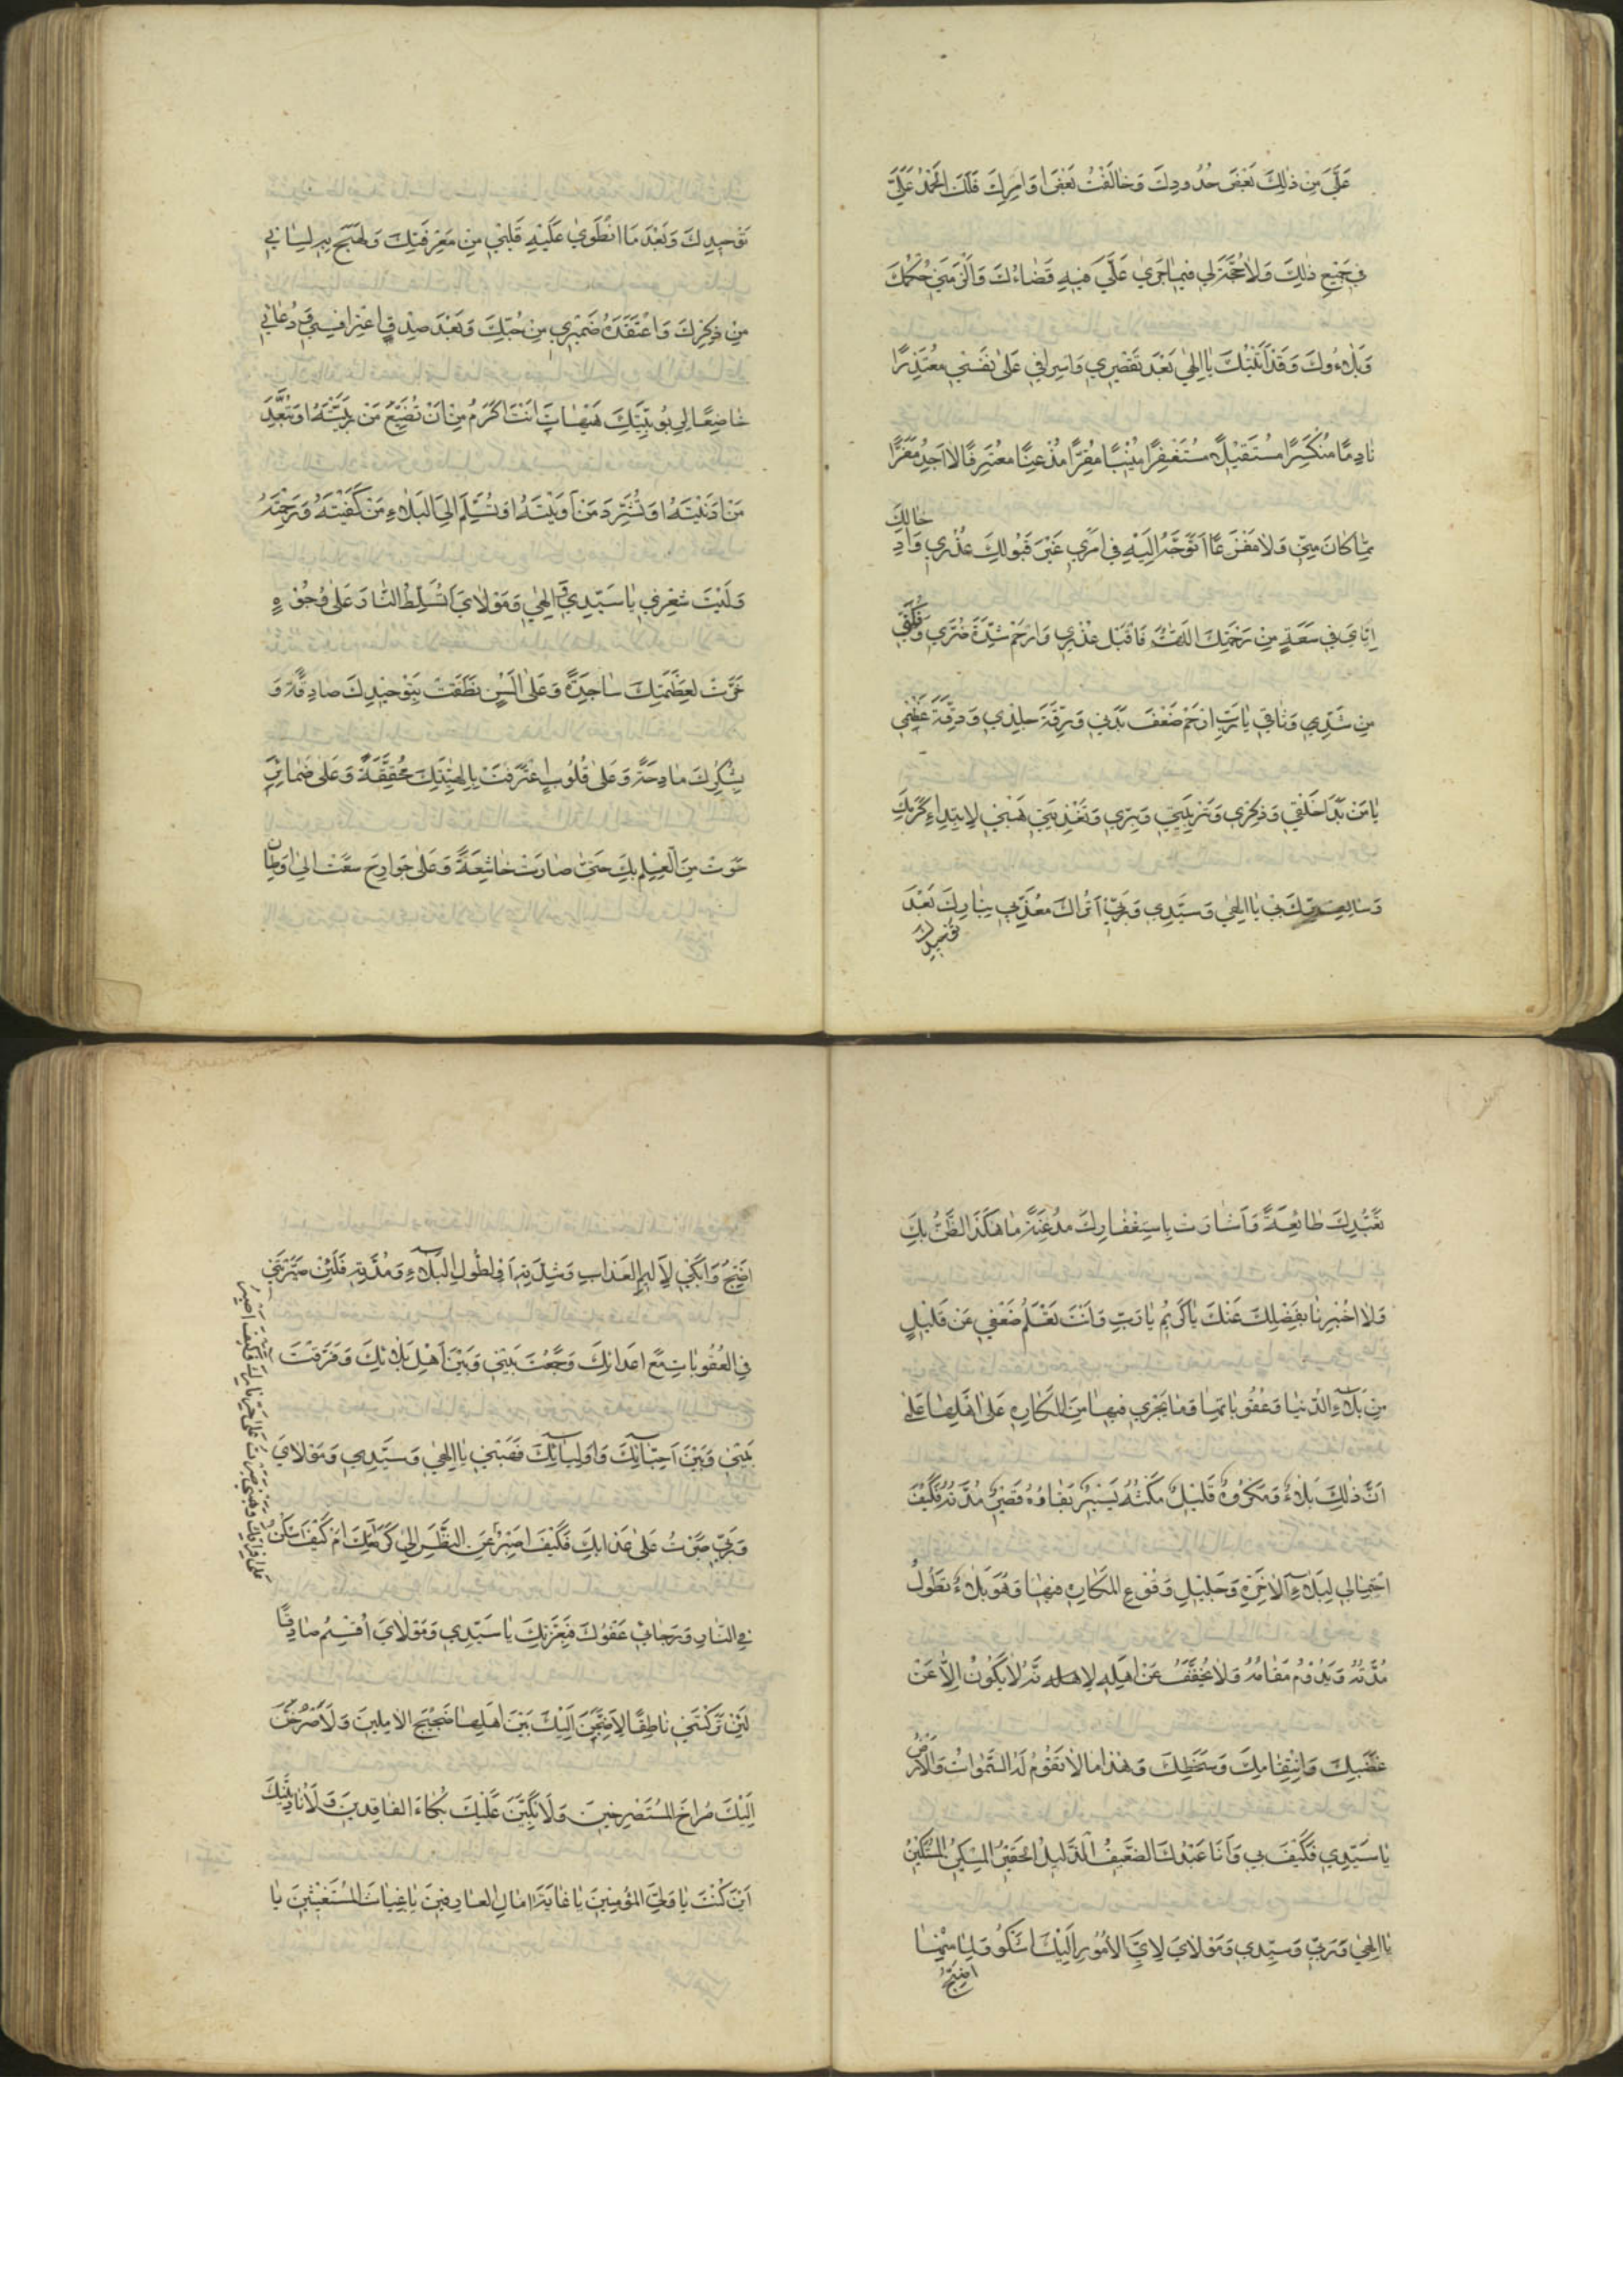 عَلَيَّ مِنْ ذٰلِكَ بَعْضَ حُدُودِكَ وَخَالَفْتُ بَعْضَ اَوَامِرِكَ فَلَكَ الْحَمْدُ عَلَيَّ
فِي جَمِيعِ ذٰلِكَ وَلَا حُجَّةَ لِي فِيمَا جَرىٰ عَلَيَّ فِيهِ قَضَاءُكَ وَاَلْزَمَنِي حُكْمُكَ
وَبَلَاءُوكَ وَقَدْ اَتَيْتُكَ يَا اِلٰهِي بَعْدَ تَقْصِيرِي وَاِسْرَافِي عَلىٰ نَفْسِي مُعْتَذِرًا
نَادِمًا مُنْكَسِرًا مُسْتَقِيلًا مُسْتَغْفِرًا مُنِيبًا مُقِرًّا مُذْعِنًا مُعْتَرِفًا لَا اَجِدُ مَفَرًّا
مِمَّا كَانَ مِنِّي وَلَا مَفْزَعًا اَتَوَجَّهُ اِلَيْهِ فِي اَمْرِي غَيْرَ قَبُولِكَ عُذْرِي وَاِدْخَالِكَ
اِيَّايَ فِي سَعَةٍ مِنْ رَحْمَتِكَ اللّٰهُمَّ فَاقْبَلْ عُذْرِي وَارْحَمْ شِدَّةَ ضُرِّي وَفُكَّنِي
مِنْ شَدِّ وَثَاقِي يَا رَبِّ ارْحَمْ ضَعْفَ بَدَنِي وَرِقَّةَ جِلْدِي وَدِقَّةَ عَظْمِي
يَا مَنْ بَدَأَ خَلْقِي وَذِكْرِي وَتَرْبِيَتِي وَبِرِّي وَتَغْذِيَتِي هَبْنِي لِابْتِدَاءِ كَرَمِكَ
وَسَالِفِ بِرِّكَ بِي يَا اِلٰهِي وَسَيِّدِي وَرَبِّي اَتُرَاكَ مُعَذِّبِي بِنَارِكَ بَعْدَ
تَوْحِيدِكَ
تَوْحِيدِكَ وَبَعْدَ مَا انْطَوىٰ عَلَيْهِ قَلْبِي مِنْ مَعْرِفَتِكَ وَلَهِجَ بِهِ لِسَانِي
مِنْ ذِكْرِكَ وَاعْتَقَدَهُ ضَمِيرِي مِنْ حُبِّكَ وَبَعْدَ صِدْقِ اعْتِرَافِي وَدُعَائِي
خَاضِعًا لِرُبُوبِيَّتِكَ هَيْهَاتَ اَنْتَ اَكْرَمُ مِنْ اَنْ تُضَيِّعَ مَنْ رَبَّيْتَهُ اَوْ تُبَعِّدَ
مَنْ اَدْنَيْتَهُ اَوْ تُشَرِّدَ مَنْ اٰوَيْتَهُ اَوْ تُسَلِّمَ اِلَى الْبَلَاءِ مَنْ كَفَيْتَهُ وَرَحِمْتَهُ
وَلَيْتَ شِعْرِي يَا سَيِّدِي وَاِلٰهِي وَمَوْلَايَ اَتُسَلِّطُ النَّارَ عَلىٰ وُجُوهٍ
خَرَّتْ لِعَظَمَتِكَ سَاجِدَةً وَعَلىٰ اَلْسُنٍ نَطَقَتْ بِتَوْحِيدِكَ صَادِقَةً وَ
بِشُكْرِكَ مَادِحَةً وَعَلىٰ قُلُوبٍ اعْتَرَفَتْ بِاِلٰهِيَّتِكَ مُحَقِّقَةً وَعَلىٰ ضَمَائِرَ
حَوَتْ مِنَ الْعِلْمِ بِكَ حَتّىٰ صَارَتْ خَاشِعَةً وَعَلىٰ جَوَارِحَ سَعَتْ اِلىٰ اَوْطَانِ
تَعَبُّدِكَ طَائِعَةً وَاَشَارَتْ بِاسْتِغْفَارِكَ مُذْعِنَةً مَا هٰكَذَا الظَّنُّ بِكَ
وَلَا اُخْبِرْنَا بِفَضْلِكَ عَنْكَ يَا كَرِيمُ يَا رَبِّ وَاَنْتَ تَعْلَمُ ضَعْفِي عَنْ قَلِيلٍ
مِنْ بَلَاءِ الدُّنْيَا وَعُقُوبَاتِهَا وَمَا يَجْرِي فِيهَا مِنَ الْمَكَارِهِ عَلىٰ اَهْلِهَا عَلىٰ
اَنَّ ذٰلِكَ بَلَاءٌ وَمَكْرُوهٌ قَلِيلٌ مَكْثُهُ يَسِيرٌ بَقَاؤُهُ قَصِيرٌ مُدَّتُهُ فَكَيْفَ
احْتِمَالِي لِبَلَاءِ الْاٰخِرَةِ وَجَلِيلِ وُقُوعِ الْمَكَارِهِ فِيهَا وَهُوَ بَلَاءٌ تَطُولُ
مُدَّتُهُ وَيَدُومُ مَقَامُهُ وَلَا يُخَفَّفُ عَنْ اَهْلِهِ لِاَنَّهُ لَا يَكُونُ اِلَّا عَنْ
غَضَبِكَ وَانْتِقَامِكَ وَسَخَطِكَ وَهٰذَا مَا لَا تَقُومُ لَهُ السَّمٰوَاتُ وَالْاَرْضُ
يَا سَيِّدِي فَكَيْفَ بِي وَاَنَا عَبْدُكَ الضَّعِيفُ الذَّلِيلُ الْحَقِيرُ الْمِسْكِينُ الْمُسْتَكِينُ
يَا اِلٰهِي وَرَبِّي وَسَيِّدِي وَمَوْلَايَ لِاَيِّ الْاُمُورِ اِلَيْكَ اَشْكُو وَلِمَا مِنْهَا
اَضِجُّ
اَضِجُّ وَاَبْكِي لِاَلِيمِ الْعَذَابِ وَشِدَّتِهِ اَمْ لِطُولِ الْبَلَاءِ وَمُدَّتِهِ فَلَئِنْ صَيَّرْتَنِي
فِي الْعُقُوبَاتِ مَعَ اَعْدَائِكَ وَجَمَعْتَ بَيْنِي وَبَيْنَ اَهْلِ بَلَائِكَ وَفَرَّقْتَ
بَيْنِي وَبَيْنَ اَحِبَّائِكَ وَاَوْلِيَائِكَ فَهَبْنِي يَا اِلٰهِي وَسَيِّدِي وَمَوْلَايَ
وَرَبِّي صَبَرْتُ عَلىٰ عَذَابِكَ فَكَيْفَ اَصْبِرُ عَنِ النَّظَرِ اِلىٰ كَرَامَتِكَ اَمْ كَيْفَ اَسْكُنُ
فِي النَّارِ وَرَجَائِي عَفْوُكَ فَبِعِزَّتِكَ يَا سَيِّدِي وَمَوْلَايَ اُقْسِمُ صَادِقًا
لَئِنْ تَرَكْتَنِي نَاطِقًا لَاَضِجَّنَّ اِلَيْكَ بَيْنَ اَهْلِهَا ضَجِيجَ الْاٰمِلِينَ وَلَاَصْرُخَنَّ
اِلَيْكَ صُرَاخَ الْمُسْتَصْرِخِينَ وَلَاَبْكِيَنَّ عَلَيْكَ بُكَاءَ الْفَاقِدِينَ وَلَاُنَادِيَنَّكَ
اَيْنَ كُنْتَ يَا وَلِيَّ الْمُؤْمِنِينَ يَا غَايَةَ اٰمَالِ الْعَارِفِينَ يَا غِيَاثَ الْمُسْتَغِيثِينَ يَا
عَلىٰ فِرَاقِكَ وَهَبْنِي صَبَرْتُ عَلىٰ حَرِّ نَارِكَ فَكَيْفَ اَصْبِرُ